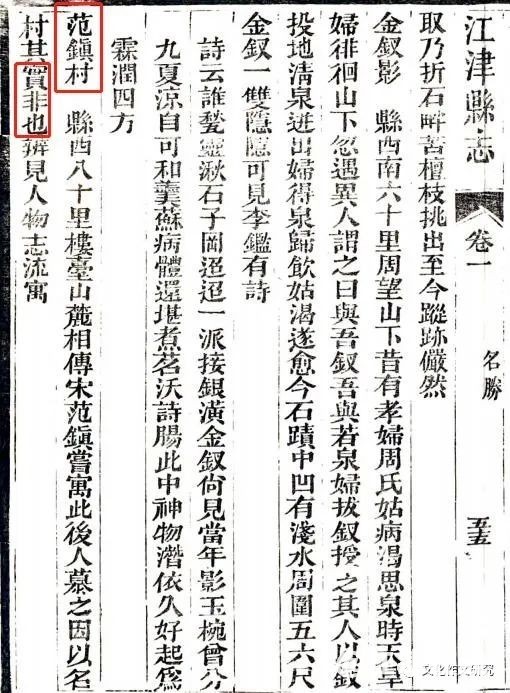 江津縣志
卷一
名勝
五五
取乃折石畔苦檀枝挑出至今蹤跡儼然
金釵影 縣西南六十里周望山下昔有孝婦周氏姑病渴思泉時天旱
婦徘徊山下忽遇異人謂之曰與吾釵吾與若泉婦拔釵授之其人以釵
投地清泉迸出婦得泉歸飲姑渴遂愈今石蹟中凹有淺水周圍五六尺
金釵一雙隱隱可見李鑑有詩
詩云誰甃靈湫石子岡迢迢一派接銀潢金釵尙見當年影玉椀曾分
九夏涼自可和羹蘇病體還堪煮茗沃詩腸此中神物潛依久好起爲
霖潤四方
范鎭村 縣西八十里樓臺山麓相傳宋范鎭嘗寓此後人慕之因以名
村其實非也辨見人物志流寓
文化范文研究